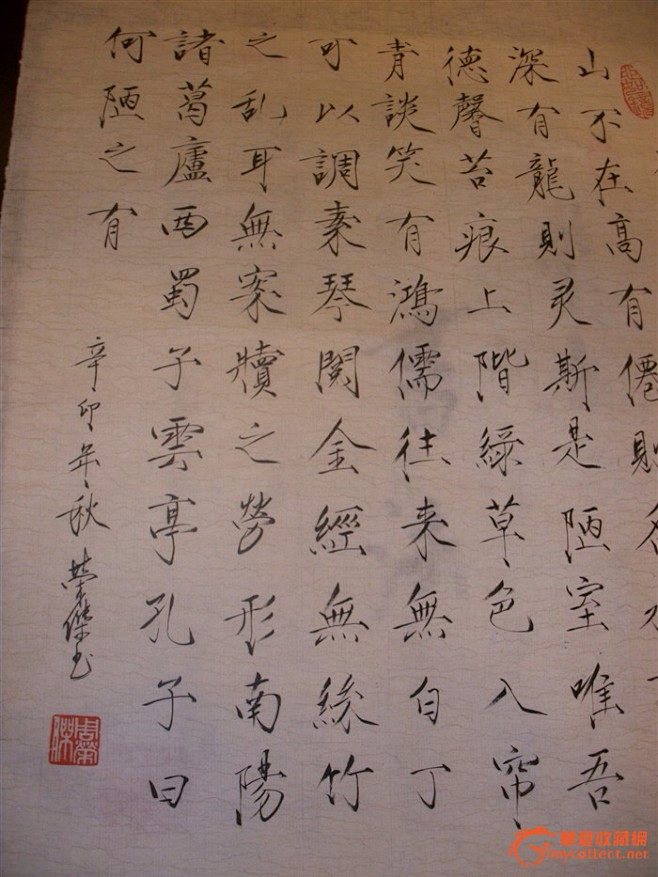 山不在高有僊則名水不
深有龍則灵斯是陋室唯吾
德馨苔痕上階綠草色入帘
青談笑有鴻儒往来無白丁
可以調素琴閱金經無絲竹
之乱耳無案牘之勞形南陽
諸葛廬西蜀子雲亭孔子曰
何陋之有
辛卯年秋榮傑书
周榮傑
華夏收藏網
mycollect.net